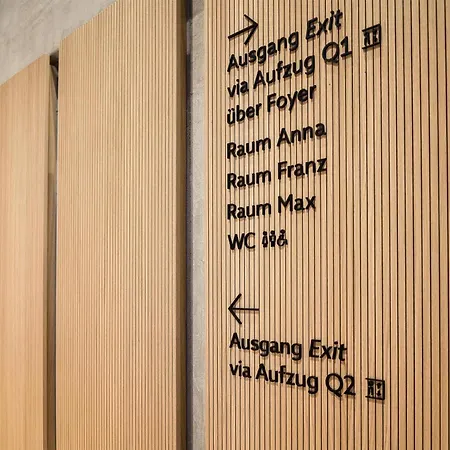 Ausgang Exit
via Aufzug Q1
über Foyer
Raum Anna
Raum Franz
Raum Max
WC
Ausgang Exit
via Aufzug Q2